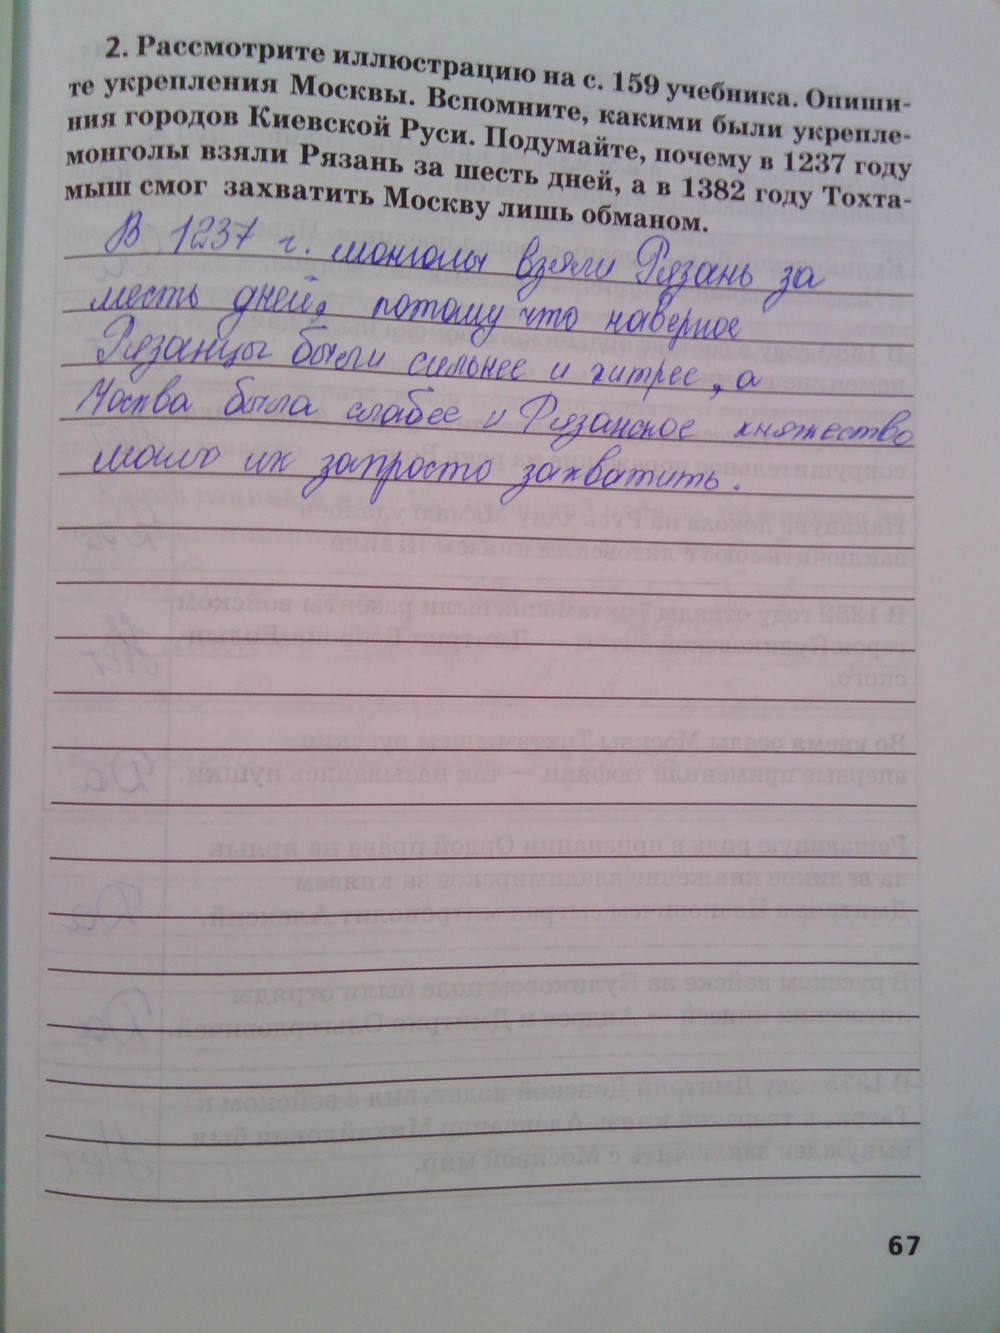 2. Рассмотрите иллюстрацию на с. 159 учебника. Опиши-
те укрепления Москвы. Вспомните, какими были укрепле-
ния городов Киевской Руси. Подумайте, почему в 1237 году
монголы взяли Рязань за шесть дней, а в 1382 году Тохта-
мыш смог захватить Москву лишь обманом.
В 1237 г. монголы взяли Рязань за
шесть дней, потому что наверное
Рязанцы были сильнее и хитрее, а
Москва была слабее и Рязанское княжество
могло их запросто захватить.
67